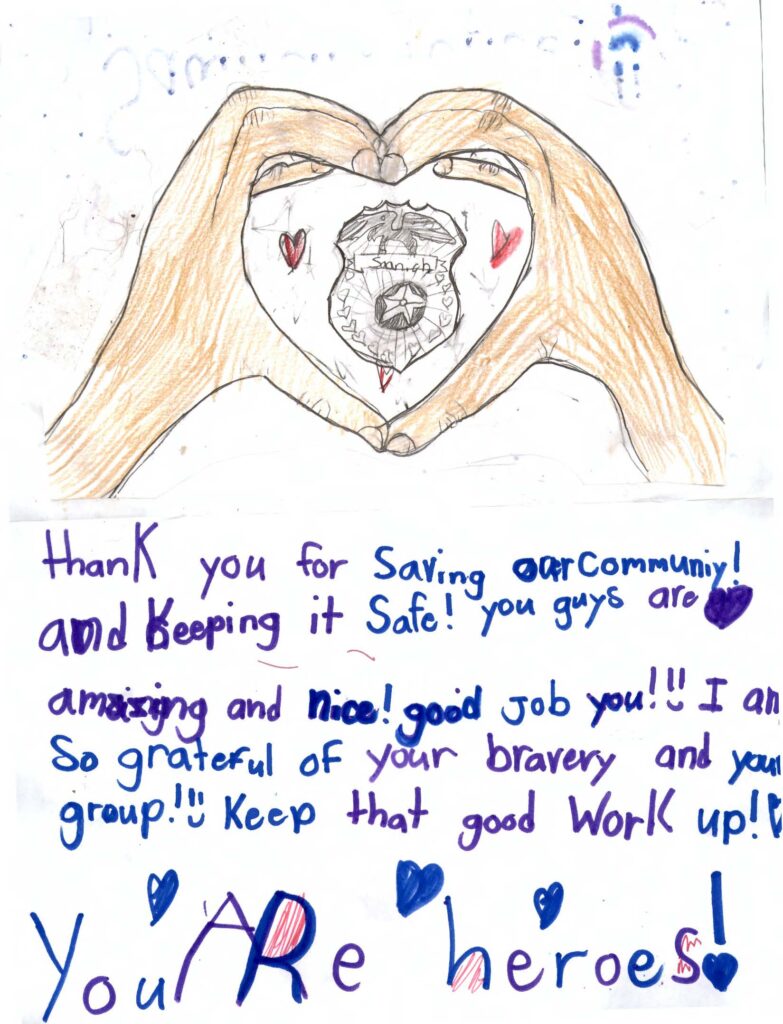 thanK you for Saving our Communiy!
and Keeping it Safe! you guys are
amazing and nice! good Job you!!! I am
So grateful of your bravery and your
group!!! Keep that good WorK up!
You ARe heroes!